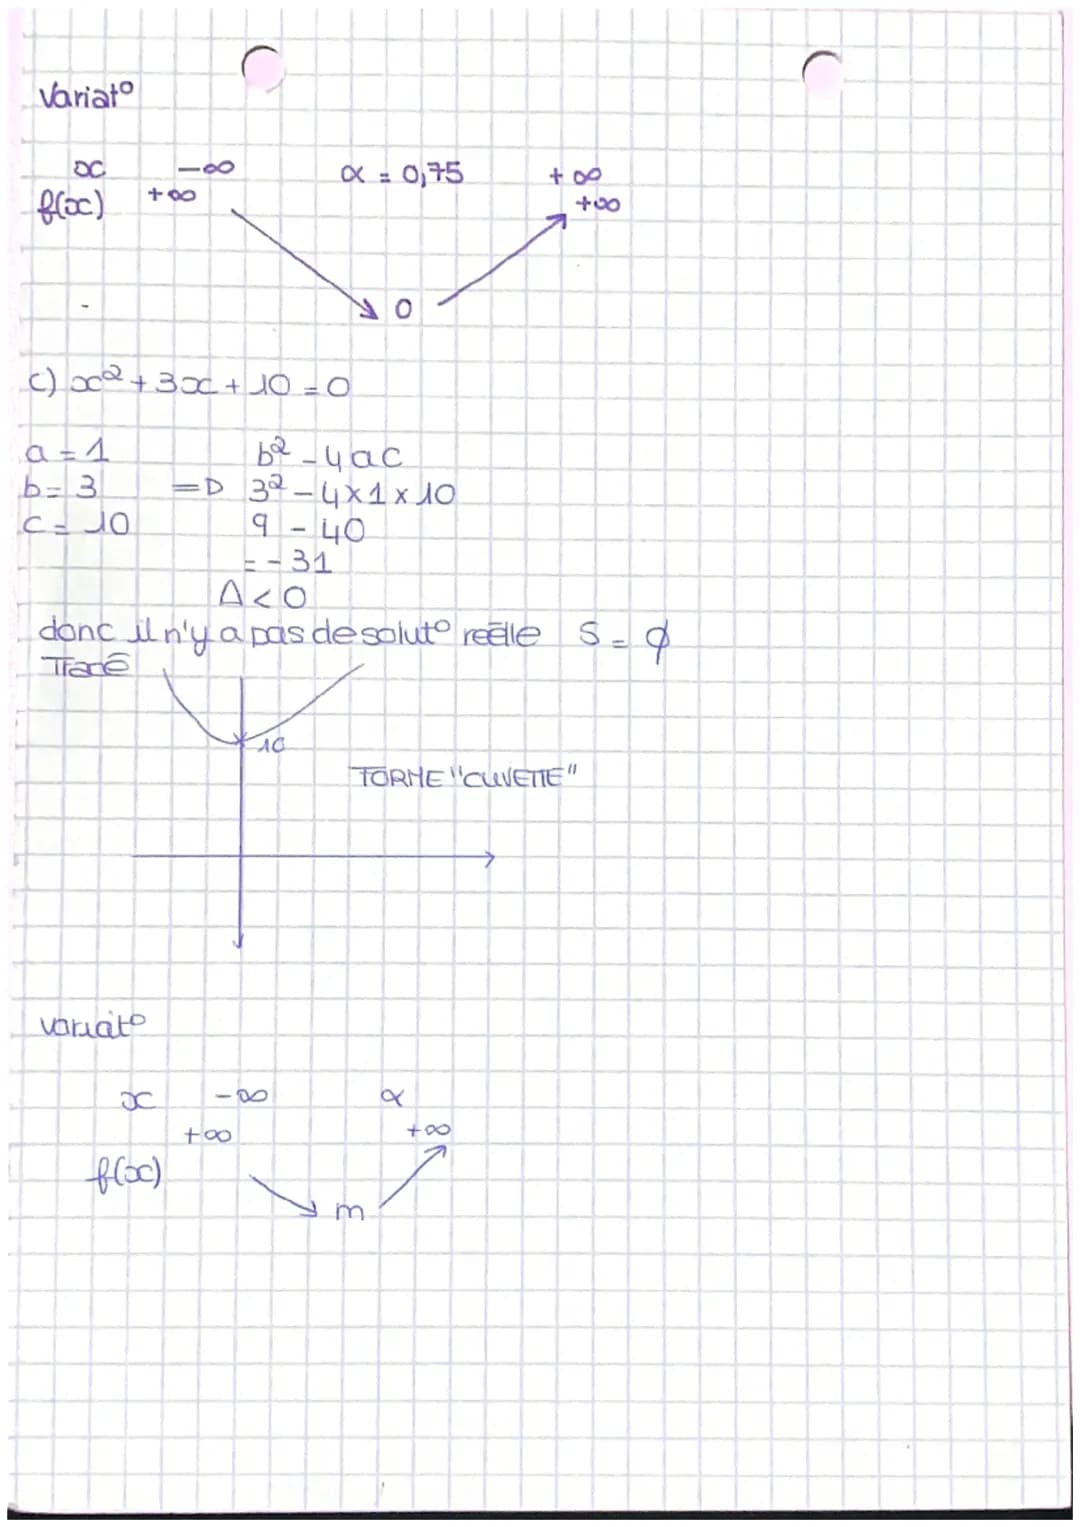 Variat°
x -∞ α = 0,75 +∞
f(x) +∞ +∞
0
c) x² + 3x + 10 = 0
a = 1 b² - 4ac
b = 3 => 3² - 4 x 1 x 10
c = 10 9 - 40
= - 31
Δ < 0
donc il n'y a pas de solut° réelle S = ∅
Tracé
10
FORME "CUVETTE"
variat°
x -∞ α
+∞ +∞
f(x)
m